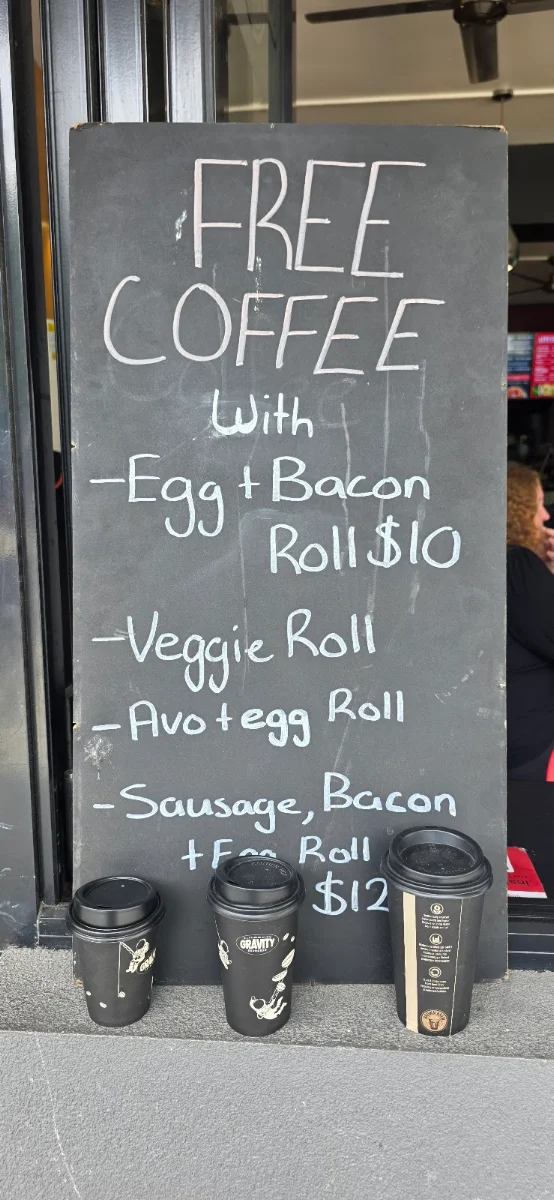 FREE
COFFEE
With
- Egg + Bacon
Roll $10
- Veggie Roll
- Avo + egg Roll
- Sausage, Bacon
+ Egg Roll
$12
GRAVITY